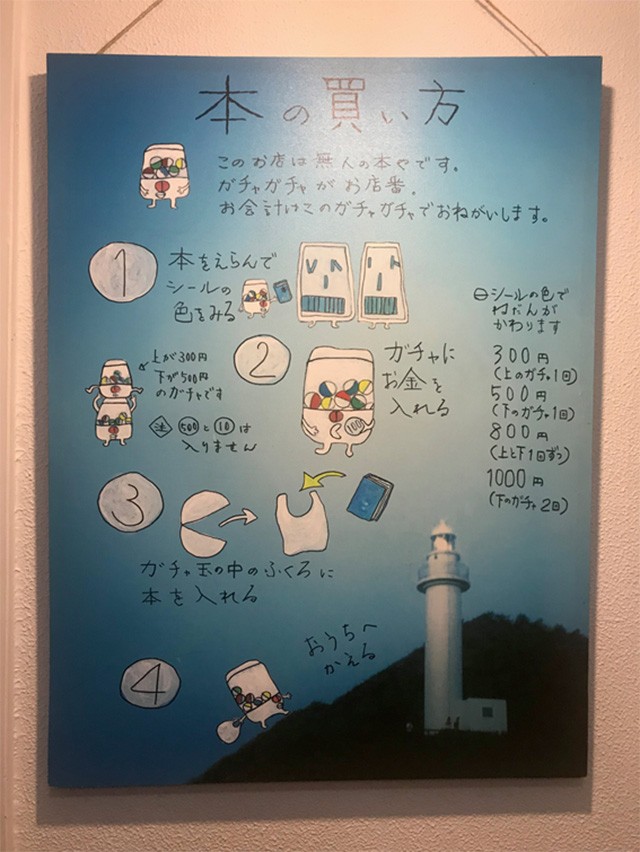 本の買い方
このお店は無人の本やです。
ガチャガチャがお店番。
お会計はこのガチャガチャでおねがいします。
1
本をえらんで
シールの
色をみる
シールの色で
ねだんが
かわります
300円
(上のガチャ1回)
500円
(下のガチャ1回)
800円
(上と下1回ずつ)
1000円
(下のガチャ2回)
上が300円
下が500円
のガチャです
注 500と10は
入りません
2
ガチャに
お金を
入れる
100
3
ガチャ玉の中のふくろに
本を入れる
4
おうちへ
かえる